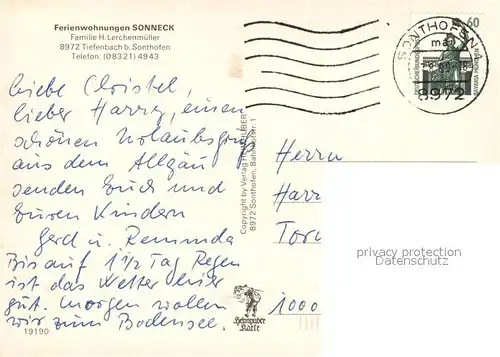 Ferienwohnungen SONNECK
Familie H. Lerchenmüller
8972 Tiefenbach b. Sonthofen
Telefon: (08321) 4943
Liebe Christel,
lieber Harry, einen
schönen Urlaubsgruß
aus dem Allgäu
senden Euch und
Euren Kindern
Gerd u.
Bis auf 1 1/2 Tag Regen
ist das Wetter hier
gut. Morgen wollen
wir zum Bodensee.
19190
Copyright by Verlag
8972 Sonthofen, Bahnhofstr. 1
Heimpuder
Karte
SONTHOFEN
8972
60
Herrn
Harr
Toru
1000
privacy protection
Datenschutz